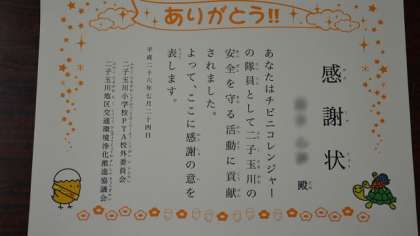 ありがとう!!
感謝状
殿
あなたはチビニコレンジャー
の隊員として二子玉川の
安全を守る活動に貢献
されました。
よって、ここに感謝の意を
表します。
平成二十六年七月二十四日
二子玉川小学校PTA校外委員会
二子玉川地区交通環境浄化推進協議会